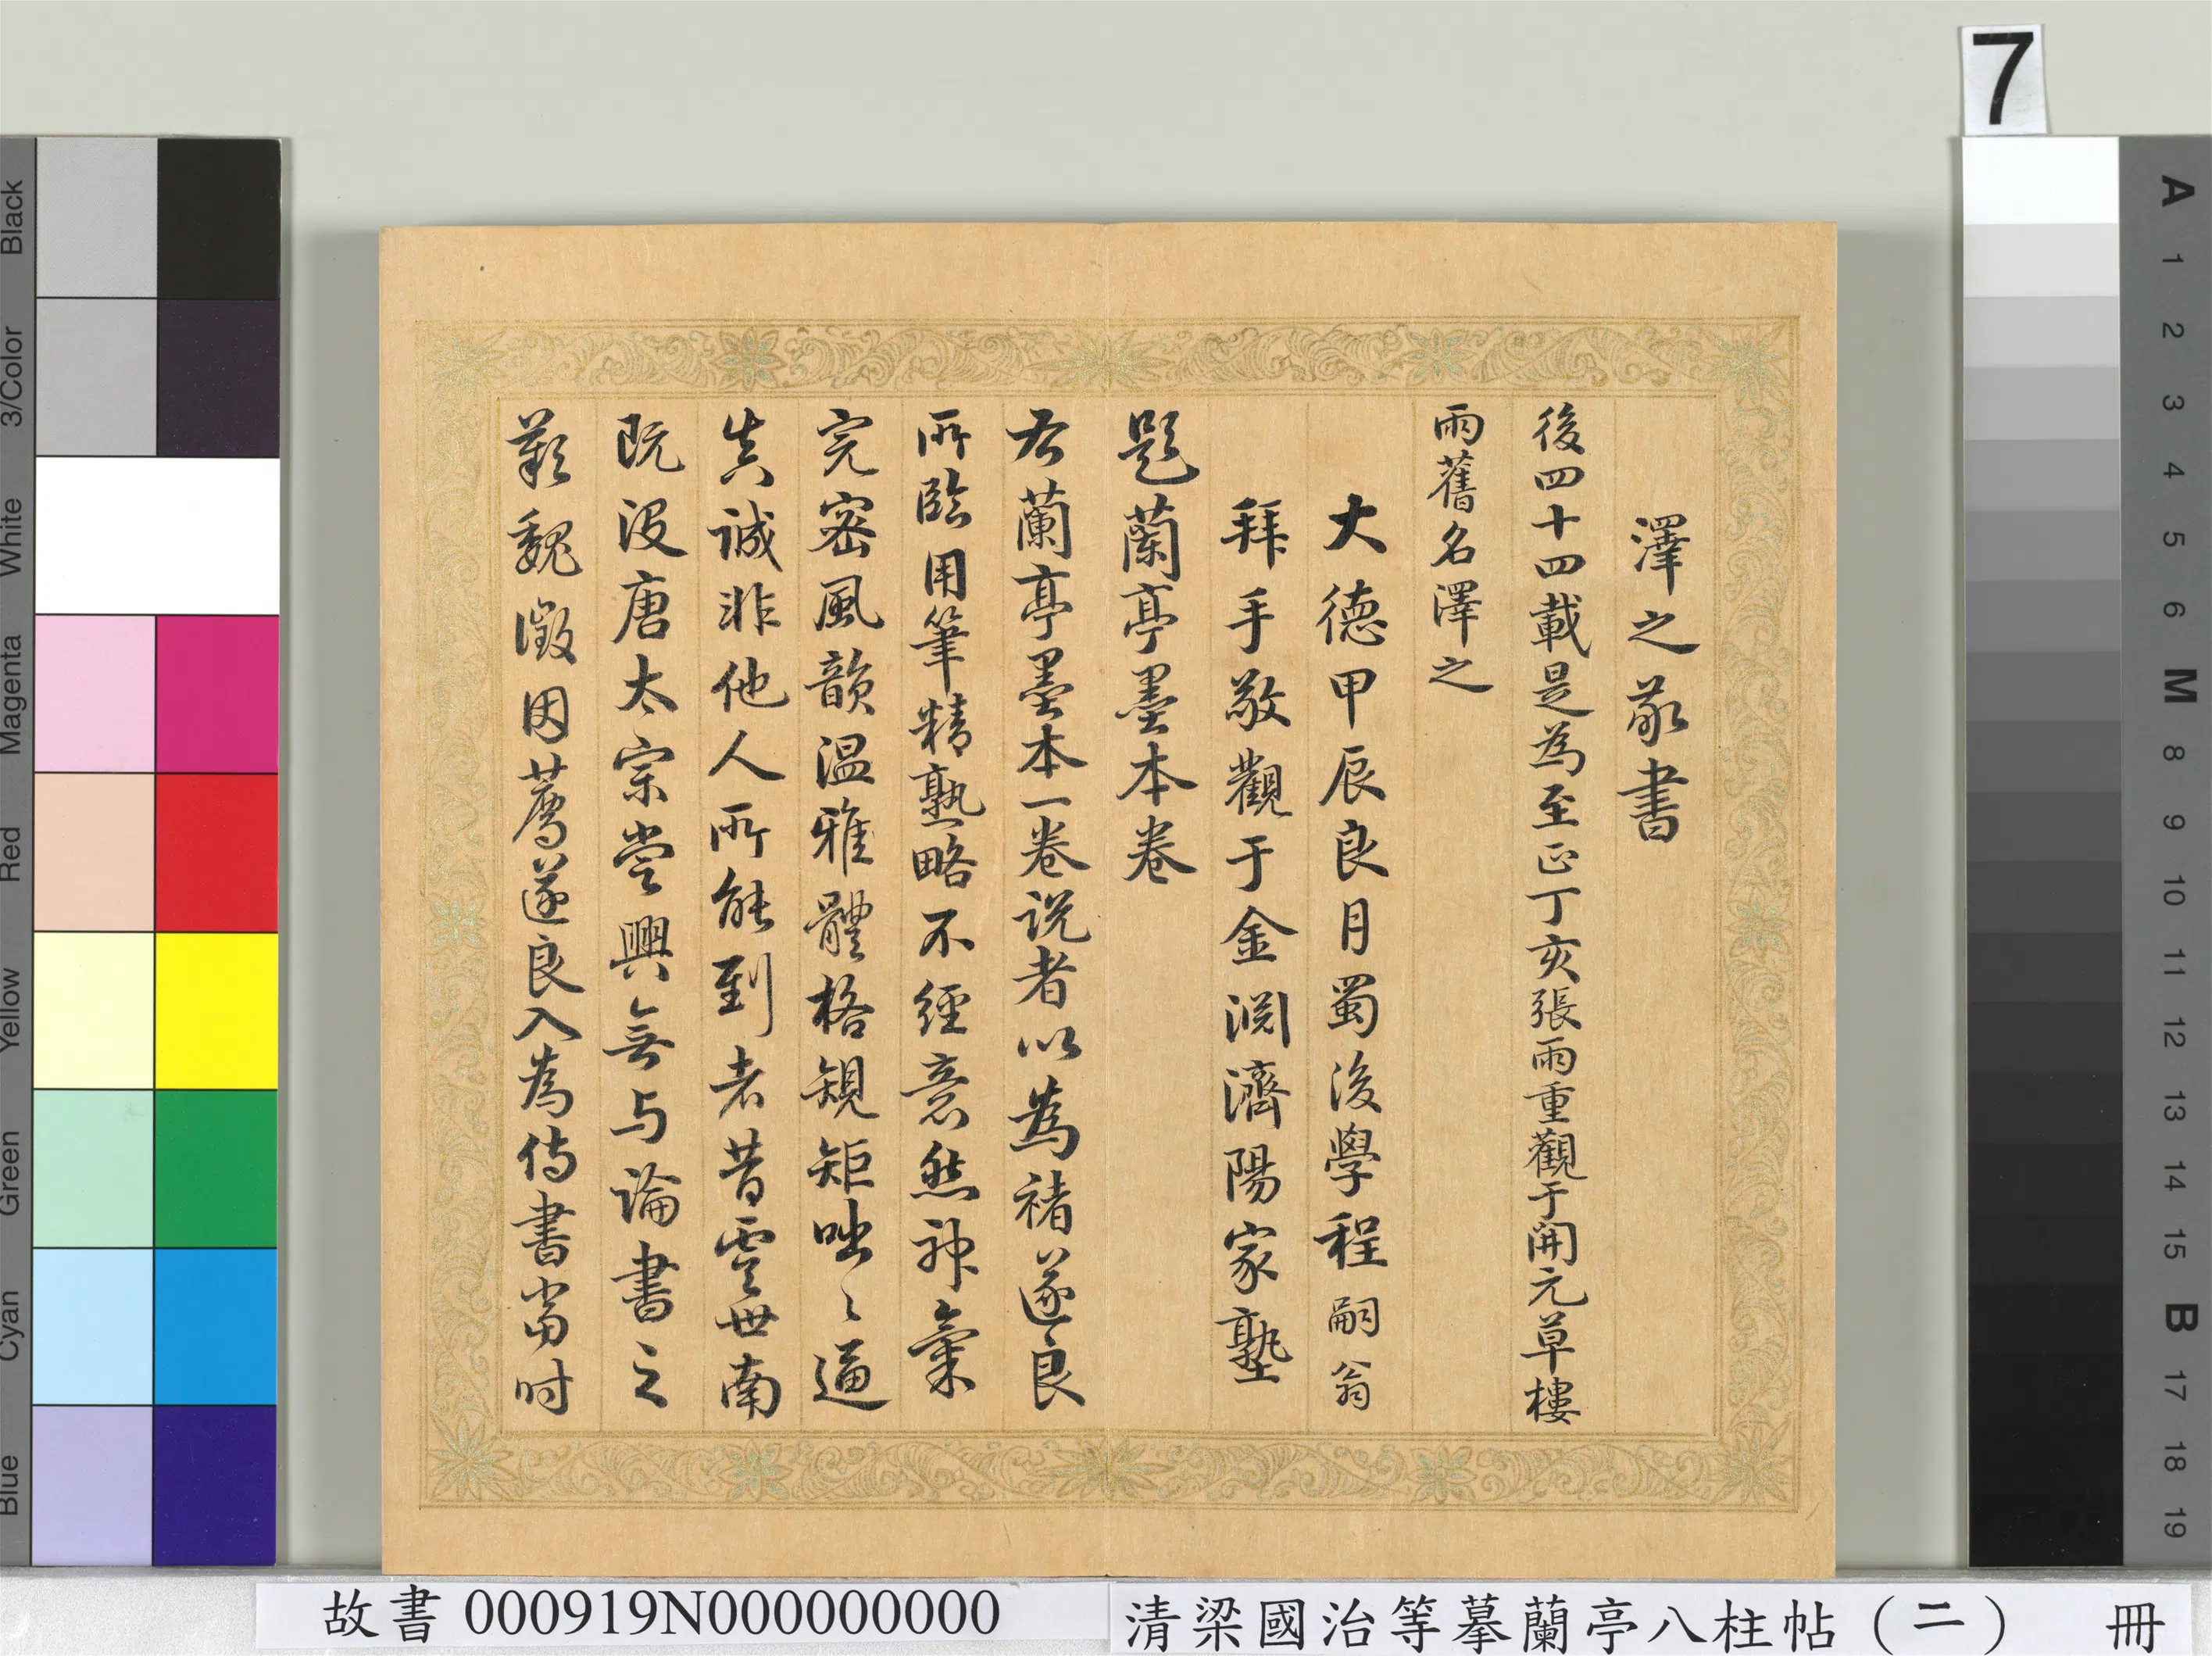 7
澤之敬書
後四十四載是為至正丁亥張雨重觀于開元草樓
雨舊名澤之
大德甲辰良月蜀後學程嗣翁
拜手敬觀于金淵濟陽家塾
題蘭亭墨本卷
右蘭亭墨本一卷説者以為褚遂良
所臨用筆精熟略不經意然神氣
完密風韻温雅體格規矩咄〻逼
真誠非他人所能到者昔虞世南
既没唐太宗嘗興無与論書之
歎魏徵因薦遂良入為侍書當時
故書 000919N000000000
清梁國治等摹蘭亭八柱帖(二) 冊
Black
3/Color
White
Magenta
Red
Yellow
Green
Cyan
Blue
A
1
2
3
4
5
6
M
8
9
10
11
12
13
14
15
B
17
18
19